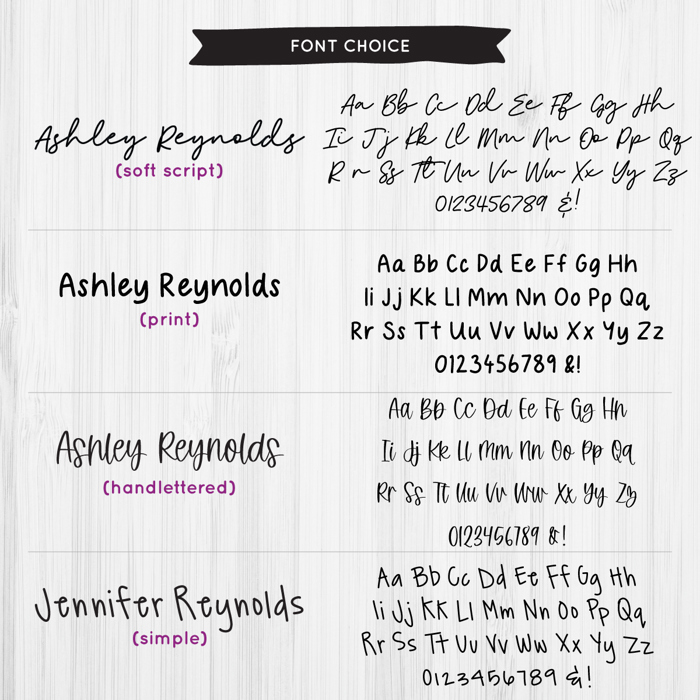 FONT CHOICE
Ashley Reynolds
(soft script)
Aa Bb Cc Dd Ee Ff Gg Hh
Ii Jj Kk Ll Mm Nn Oo Pp Qq
R r Ss Tt Uu Vv Ww Xx Yy Zz
0123456789 &!
Ashley Reynolds
(print)
Aa Bb Cc Dd Ee Ff Gg Hh
Ii Jj Kk Ll Mm Nn Oo Pp Qq
Rr Ss Tt Uu Vv Ww Xx Yy Zz
0123456789 &!
Ashley Reynolds
(handlettered)
Aa Bb Cc Dd Ee Ff Gg Hh
Ii Jj Kk Ll Mm Nn Oo Pp Qq
Rr Ss Tt Uu Vv Ww Xx Yy Zz
0123456789 &!
Jennifer Reynolds
(simple)
Aa Bb Cc Dd Ee Ff Gg Hh
Ii Jj KK Ll Mm Nn Oo Pp Qq
Rr Ss Tt Uu Vv Ww Xx Yy Zz
0123456789 &!